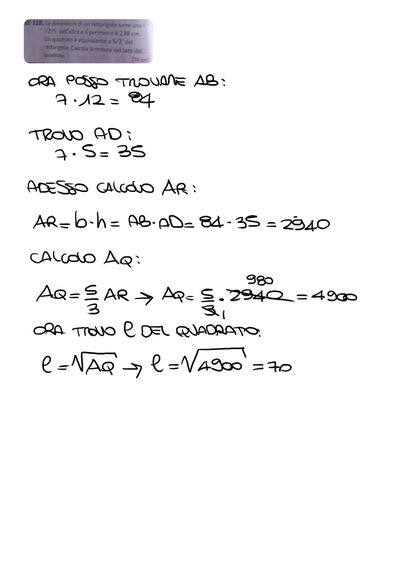 118. Le dimensioni di un rettangolo sono una i
12/5 dell'altra e il perimetro è 238 cm.
Un quadrato è equivalente a 5/3 del
rettangolo. Calcola la misura del lato del
quadrato. [70 cm]
ORA POSSO TROVARE AB:
7·12=84
TROVO AD:
7·5=35
ADESSO CALCOLO AR:
AR=b·h=AB·AD=84·35=2940
CALCOLO AQ:
980
AQ=5/3 AR → AQ=5/3·2940=4900
1
ORA TROVO l DEL QUADRATO:
l=√AQ → l=√4900=70